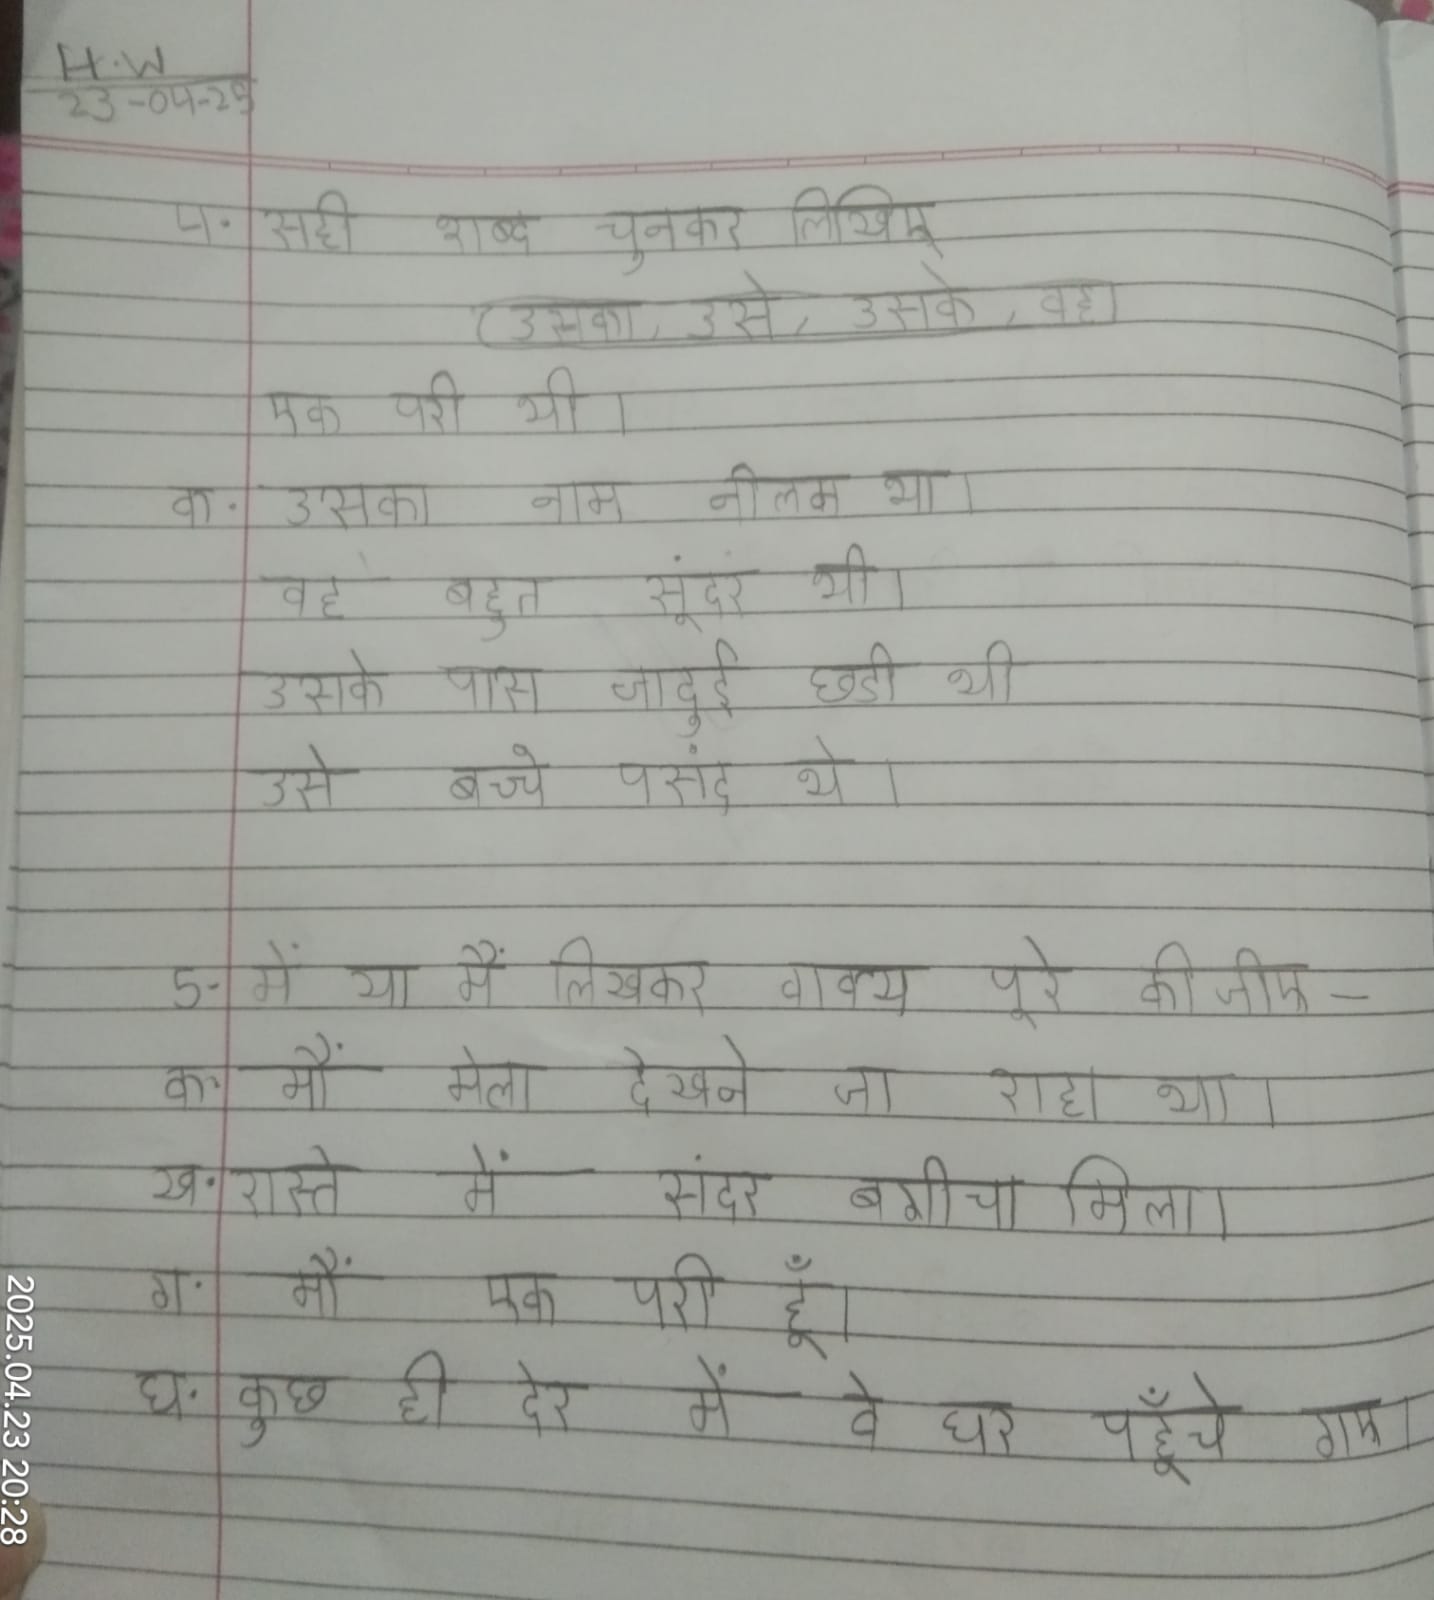 H.W
23-04-25
4. सही शब्द चुनकर लिखिए
(उसका, उसे, उसके, वह)
एक परी थी।
क. उसका नाम नीलम था।
वह बहुत सूंदर थी।
उसके पास जादुई छडी थी
उसे बच्चे पसंद थे।
5- में या मैं लिखकर वाक्य पूरे कीजीए –
क. मौं मेला देखने जा राहा था।
ख. रास्ते में संदर बगीचा मिला।
ग. मौं एक परी हूँ।
घ. कुछ ही देर में वे घर पहूँचे गए।
2025.04.23 20:28